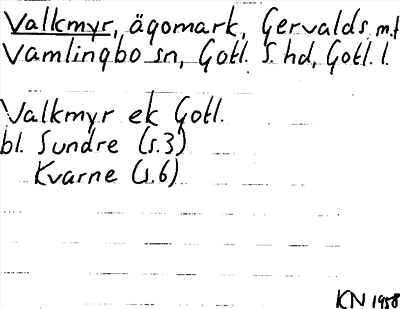 Valkmyr, ägomark, Gervalds m.fl
Vamlingbo sn, Gotl. S. hd, Gotl. l.
Valkmyr ek Gotl.
bl. Sundre (s.3)
Kvarne (s.6)
KN 1958